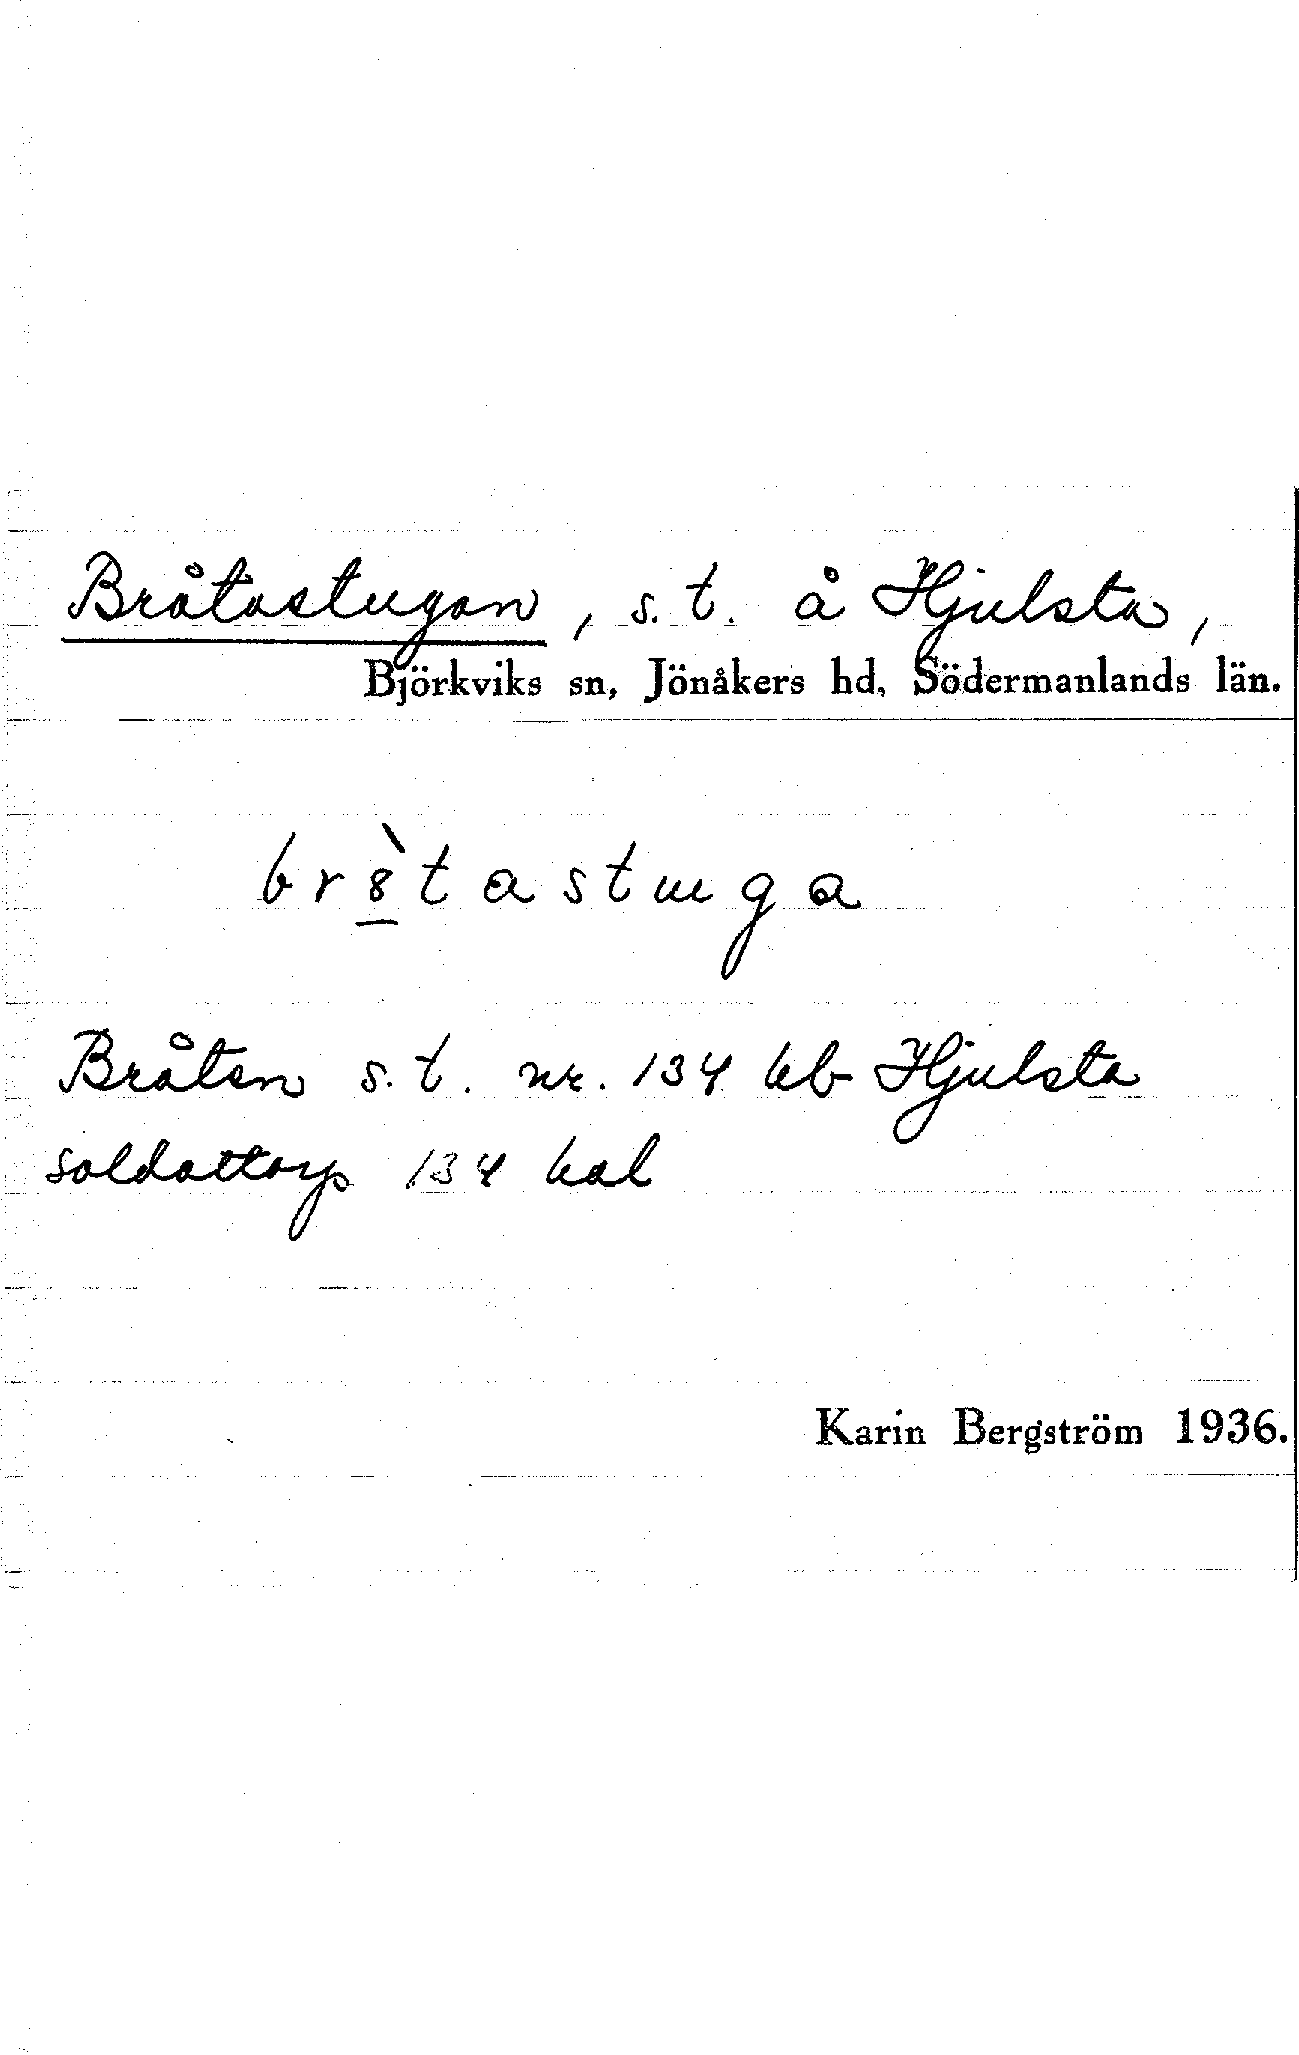 Bråtastugan, s. t. å Hjulsta,
Björkviks sn, Jönåkers hd, Södermanlands län.
br8̲̀tastuga
Bråten s. t. nr. 134 kb Hjulsta
soldattorp 134 hal
Karin Bergström 1936.